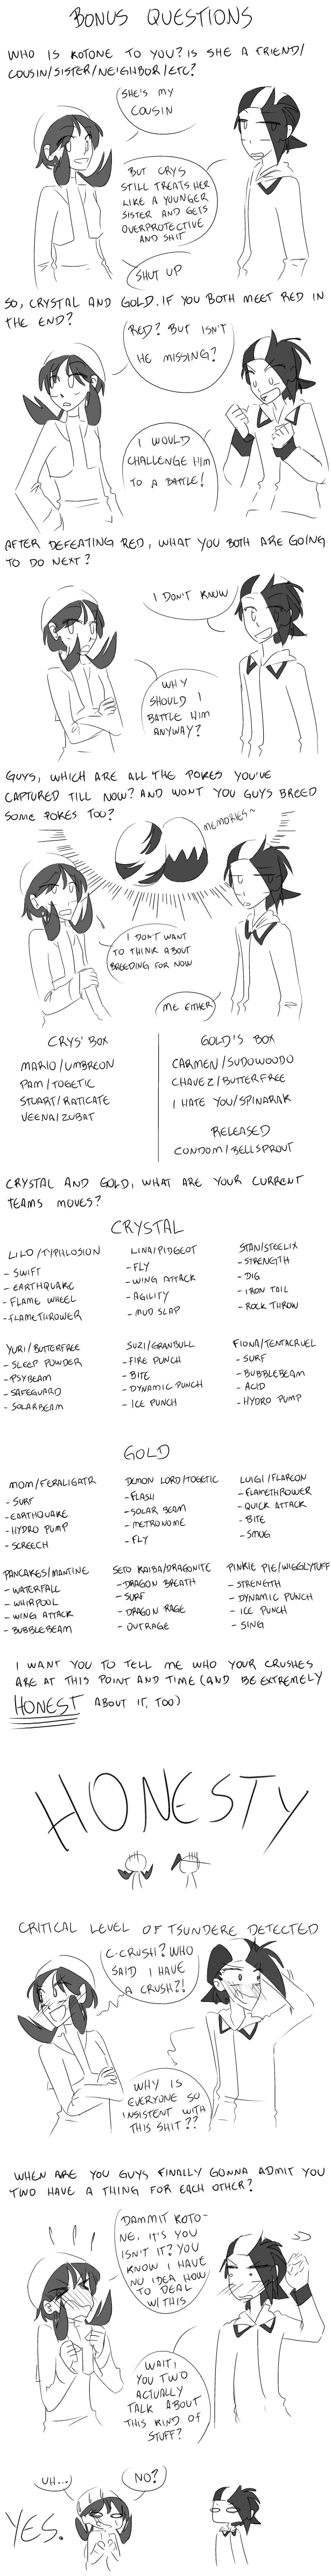 BONUS QUESTIONS
WHO IS KOTONE TO YOU? IS SHE A FRIEND/
COUSIN/SISTER/NEIGHBOR/ETC?
SHE'S MY
COUSIN
BUT CRYS
STILL TREATS HER
LIKE A YOUNGER
SISTER AND GETS
OVERPROTECTIVE
AND SHIT
SHUT UP
SO, CRYSTAL AND GOLD. IF YOU BOTH MEET RED IN
THE END?
RED? BUT ISN'T
HE MISSING?
I WOULD
CHALLENGE HIM
TO A BATTLE!
AFTER DEFEATING RED, WHAT YOU BOTH ARE GOING
TO DO NEXT?
I DON'T KNOW
WHY
SHOULD I
BATTLE HIM
ANYWAY?
GUYS, WHICH ARE ALL THE POKES YOU'VE
CAPTURED TILL NOW? AND WONT YOU GUYS BREED
SOME POKES TOO?
MEMORIES~
I DON'T WANT
TO THINK ABOUT
BREEDING FOR NOW
ME EITHER
CRYS' BOX
MARIO/UMBREON
PAM/TOGETIC
STUART/RATICATE
VEENA/ZUBAT
GOLD'S BOX
CARMEN/SUDOWOODO
CHAVEZ/BUTTERFREE
I HATE YOU/SPINARAK
RELEASED
CONDOM/BELLSPROUT
CRYSTAL AND GOLD, WHAT ARE YOUR CURRENT
TEAMS MOVES?
CRYSTAL
LILO/TYPHLOSION
- SWIFT
- EARTHQUAKE
- FLAME WHEEL
- FLAMETHROWER
LINA/PIDGEOT
- FLY
- WING ATTACK
- AGILITY
- MUD SLAP
STAN/STEELIX
- STRENGTH
- DIG
- IRON TAIL
- ROCK THROW
YURI/BUTTERFREE
- SLEEP POWDER
- PSYBEAM
- SAFEGUARD
- SOLARBEAM
SUZI/GRANBULL
- FIRE PUNCH
- BITE
- DYNAMIC PUNCH
- ICE PUNCH
FIONA/TENTACRUEL
- SURF
- BUBBLEBEAM
- ACID
- HYDRO PUMP
GOLD
MOM/FERALIGATR
- SURF
- EARTHQUAKE
- HYDRO PUMP
- SCREECH
DEMON LORD/TOGETIC
- FLASH
- SOLAR BEAM
- METRONOME
- FLY
LUIGI/FLAREON
- FLAMETHROWER
- QUICK ATTACK
- BITE
- SMOG
PANCAKES/MANTINE
- WATERFALL
- WHIRPOOL
- WING ATTACK
- BUBBLEBEAM
SETO KAIBA/DRAGONITE
- DRAGON BREATH
- SURF
- DRAGON RAGE
- OUTRAGE
PINKIE PIE/WIGGLYTUFF
- STRENGTH
- DYNAMIC PUNCH
- ICE PUNCH
- SING
I WANT YOU TO TELL ME WHO YOUR CRUSHES
ARE AT THIS POINT AND TIME (AND BE EXTREMELY
HONEST ABOUT IT, TOO)
HONESTY
CRITICAL LEVEL OF TSUNDERE DETECTED
C-CRUSH? WHO
SAID I HAVE
A CRUSH?!
WHY IS
EVERYONE SO
INSISTENT WITH
THIS SHIT??
WHEN ARE YOU GUYS FINALLY GONNA ADMIT YOU
TWO HAVE A THING FOR EACH OTHER?
DAMMIT KOTO-
NE, IT'S YOU
ISN'T IT? YOU
KNOW I HAVE
NO IDEA HOW
TO DEAL
W/THIS
WAIT,
YOU TWO
ACTUALLY
TALK ABOUT
THIS KIND OF
STUFF?
UH...
NO?
YES.